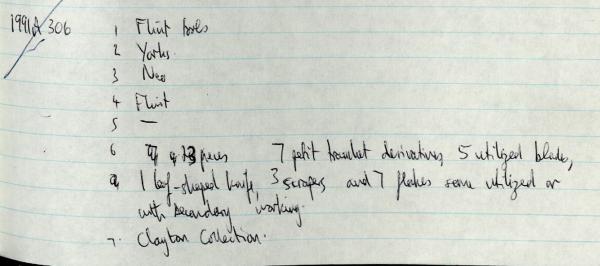 1991A 306 1 Flint tools
2 Yorks.
3 Neo
4 Flint
5 —
6 23 pieces 7 petit tranchet derivatives, 5 utilized blades,
1 leaf-shaped knife, 3 scrapers and 7 flakes some utilized or
with secondary working.
7. Clayton Collection.